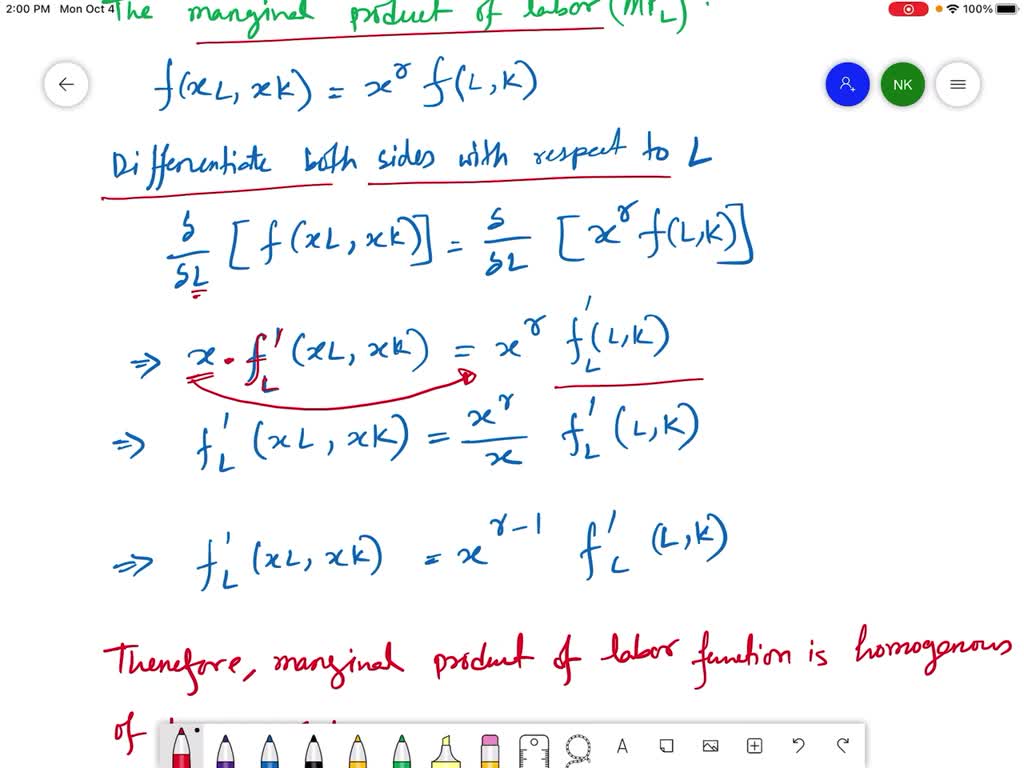 2:00 PM Mon Oct 4
100%
The marginal product of labor (MPL)
f(xL, xK) = x^r f(L, K)
NK
Differentiate both sides with respect to L
δ/δL [f(xL, xK)] = δ/δL [x^r f(L,K)]
⇒ x · f'_L (xL, xK) = x^r f'_L (L,K)
⇒ f'_L (xL, xK) = x^r/x f'_L (L,K)
⇒ f'_L (xL, xK) = x^(r-1) f'_L (L,K)
Therefore, marginal product of labor function is homogenous
of
A